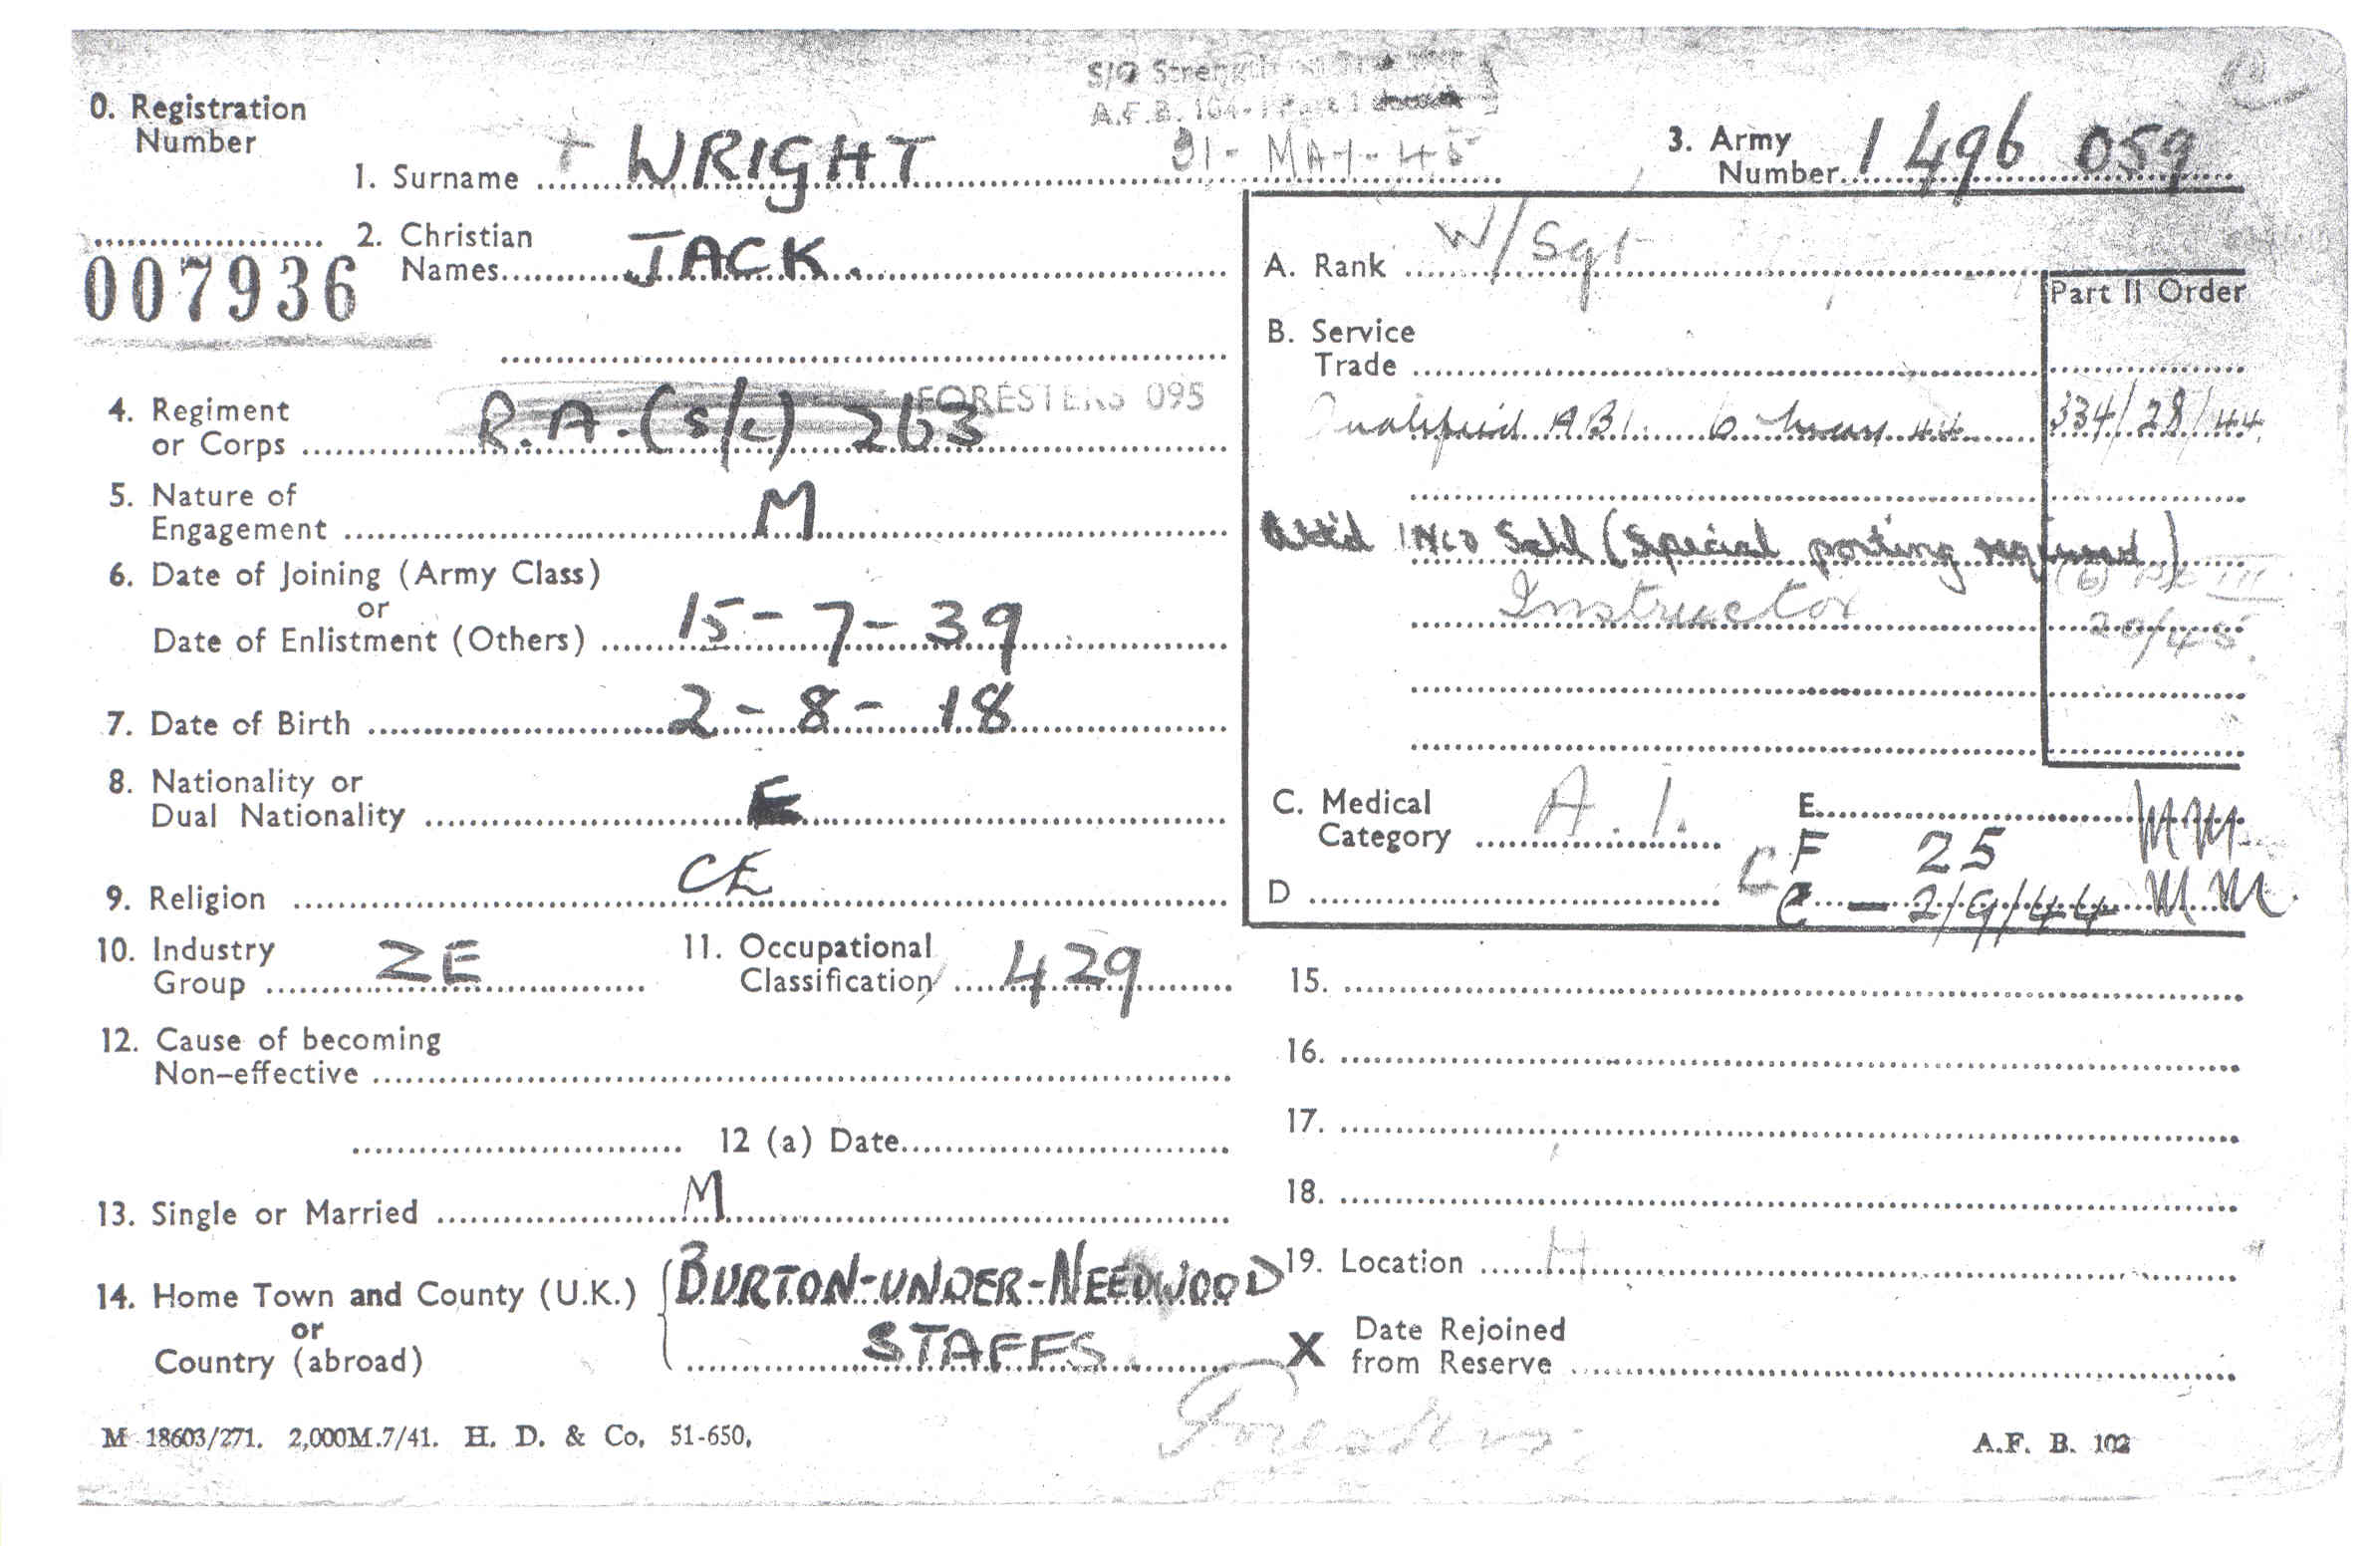 S/O Strength
A.F.B. 104-1 Part 1
31-MAY-45
C
0. Registration
Number
007936
1. Surname + WRIGHT
3. Army
Number 1496 059
2. Christian
Names JACK.
4. Regiment
or Corps R.A.(S/L) 263
FORESTERS 095
5. Nature of
Engagement M
6. Date of Joining (Army Class)
or
Date of Enlistment (Others) 15-7-39
7. Date of Birth 2-8-18
8. Nationality or
Dual Nationality E
9. Religion CE
10. Industry
Group ZE
11. Occupational
Classification 429
12. Cause of becoming
Non-effective
12 (a) Date
13. Single or Married M
14. Home Town and County (U.K.)
or
Country (abroad)
BURTON-UNDER-NEEDWOOD
STAFFS.
A. Rank W/Sgt
Part II Order
B. Service
Trade
Qualified AB1. 6 44 334/28/44
Att'd Schl (Special posting required)
Instructor
20/45.
C. Medical
Category A.1.
D
E
F 25 MM
C
C - 2/9/44 MM.
15.
16.
17.
18.
19. Location H
X Date Rejoined
from Reserve
Foresters
M 18603/271. 2,000M.7/41. H. D. & Co. 51-650.
A.F. B. 102